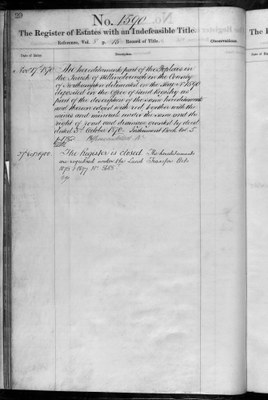 29
No. 1590
The Register of Estates with an Indefeasible Title.
Reference, Vol. p. 15 Record of Title.
Date of Entry. Description. Observations.
Nov 17 1870 The hereditaments part of the in
the Parish of Wellingborough in the County
of Northampton delineated on the Map No 1590
deposited in the Office of Land Registry as
part of the description of the same hereditaments
and thereon edged with red together with the
mines and minerals under the same and the
right of road and drainage created by deed
dated 5th October 1870
The Register is closed The hereditaments
are registered under the Land Transfer Acts
1875 & 1897 No